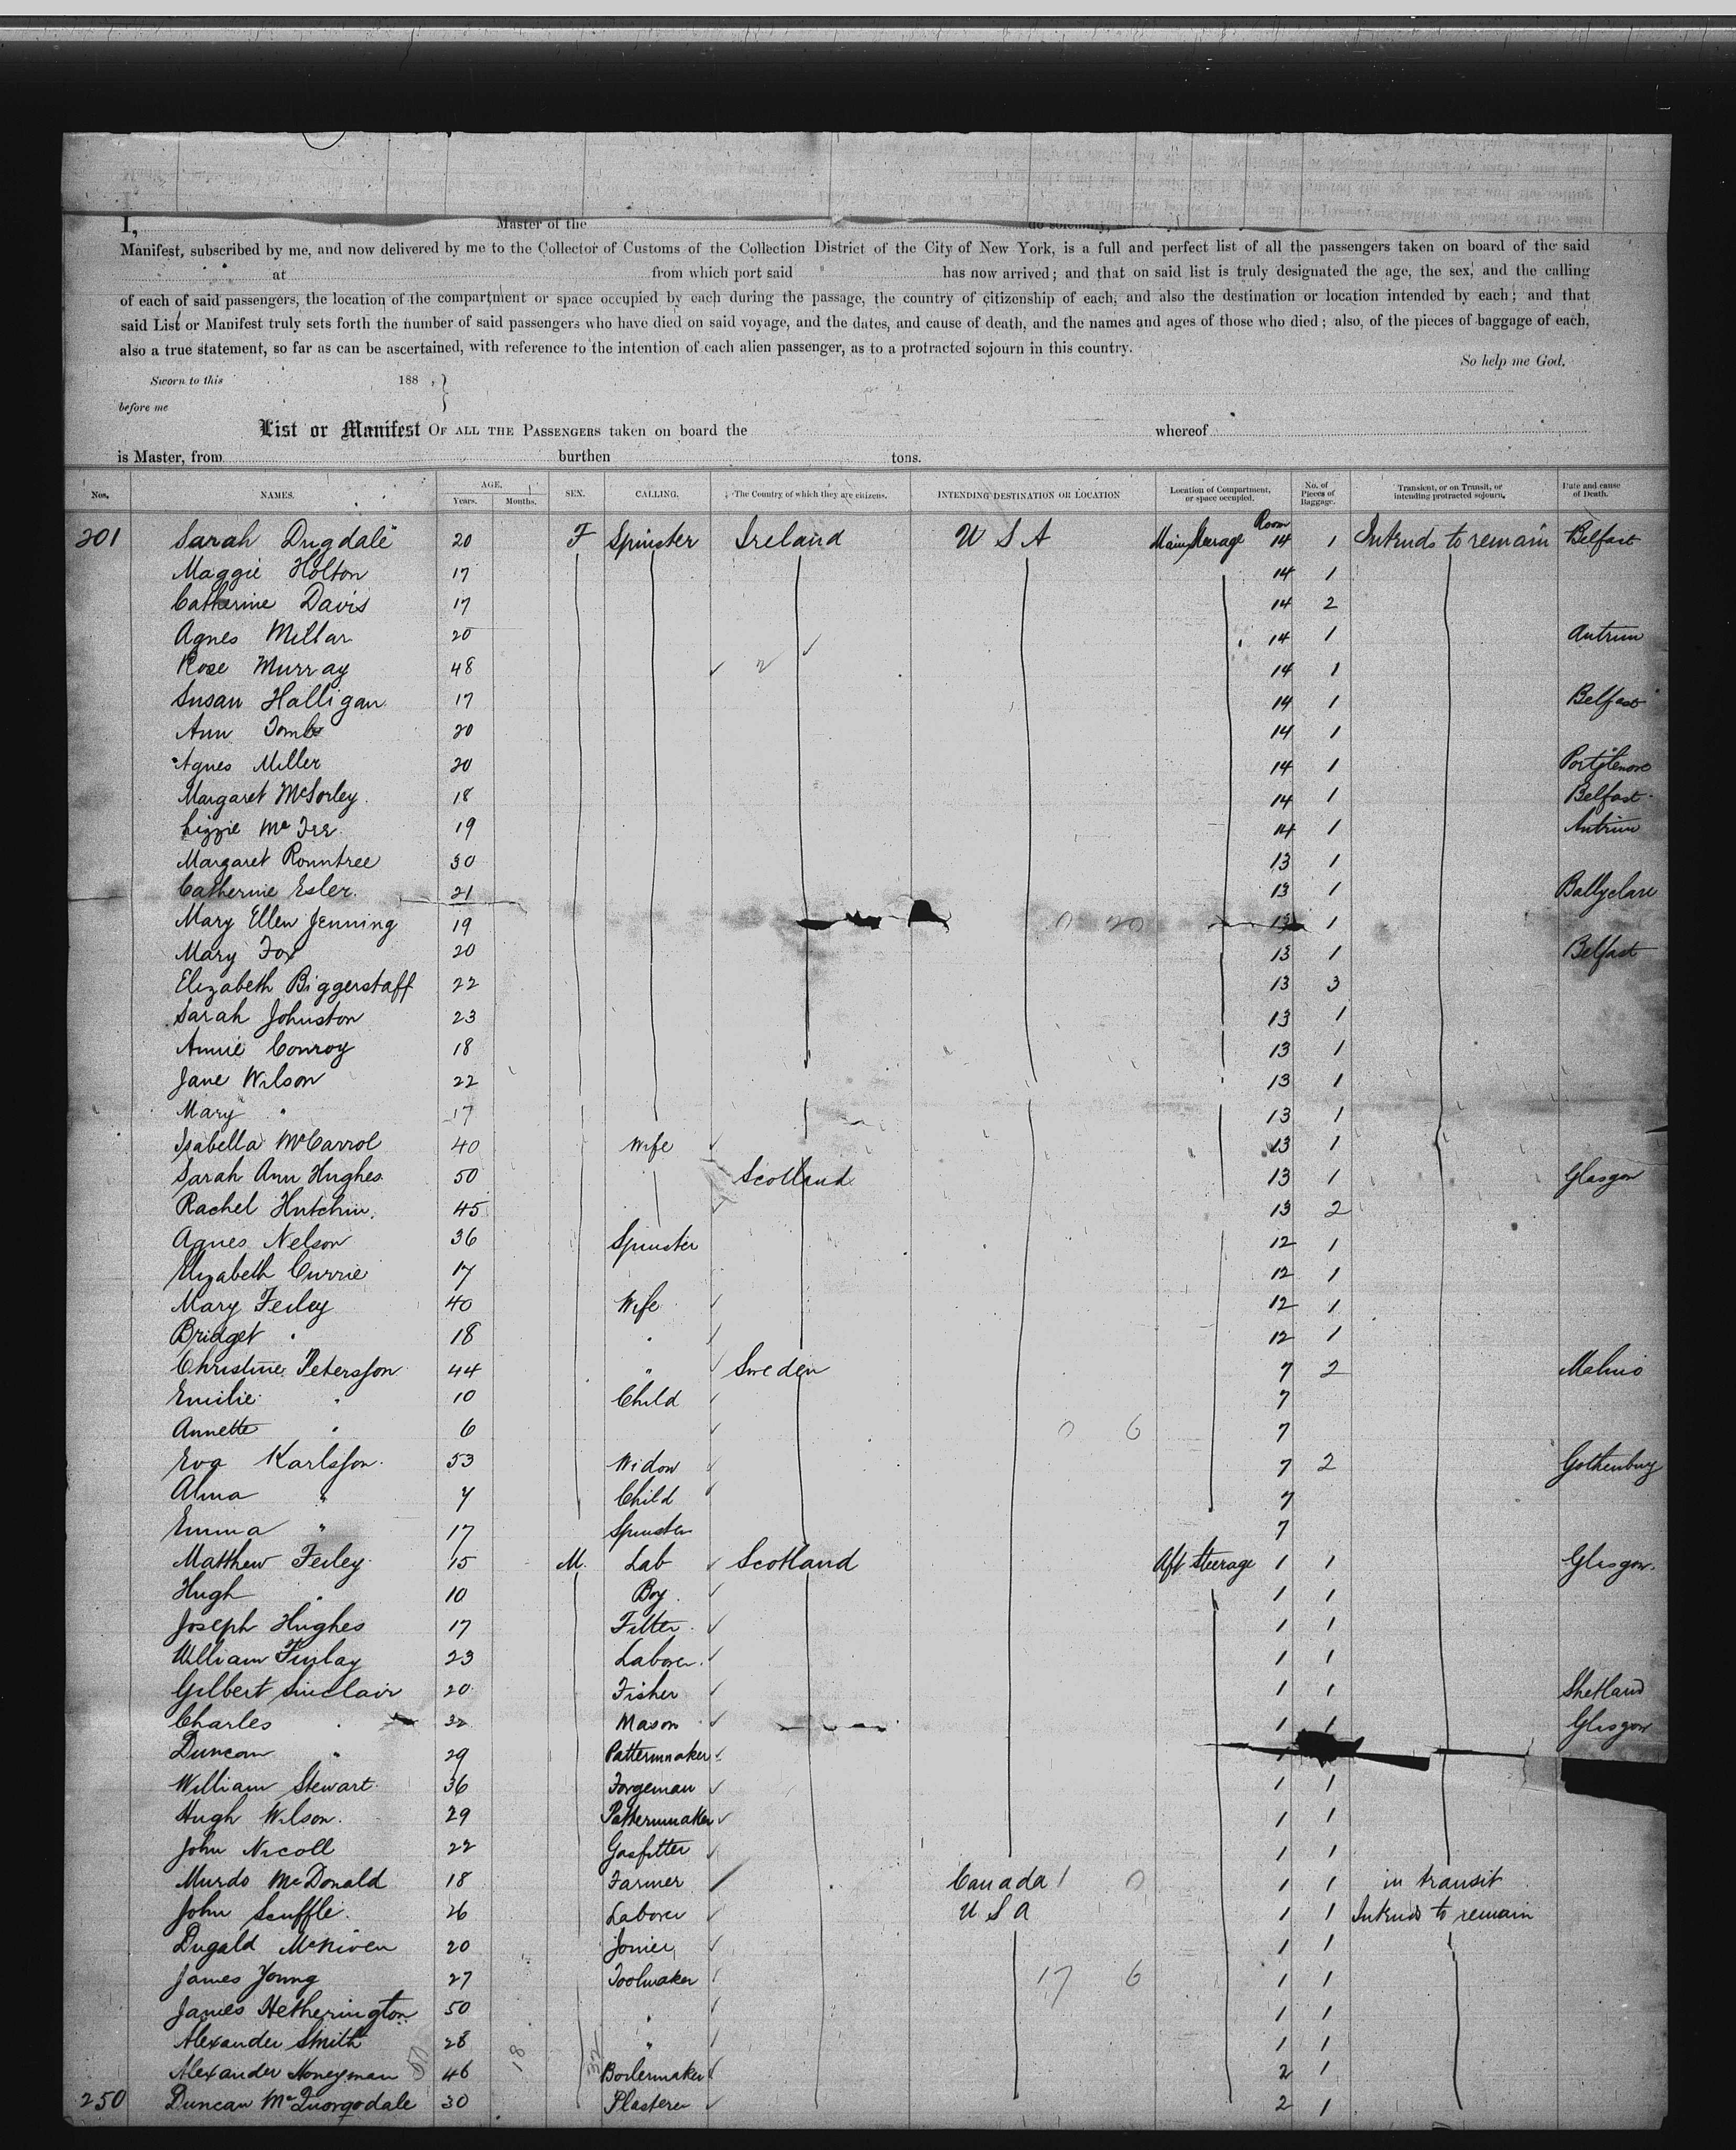 I, Master of the do solemnly,
Manifest, subscribed by me, and now delivered by me to the Collector of Customs of the Collection District of the City of New York, is a full and perfect list of all the passengers taken on board of the said
at from which port said has now arrived; and that on said list is truly designated the age, the sex, and the calling
of each of said passengers, the location of the compartment or space occupied by each during the passage, the country of citizenship of each, and also the destination or location intended by each; and that
said List or Manifest truly sets forth the number of said passengers who have died on said voyage, and the dates, and cause of death, and the names and ages of those who died; also, of the pieces of baggage of each,
also a true statement, so far as can be ascertained, with reference to the intention of each alien passenger, as to a protracted sojourn in this country.
So help me God.
Sworn to this 188
before me
List or Manifest OF ALL THE PASSENGERS taken on board the whereof
is Master, from burthen tons.
Nos. NAMES. AGE. Years. Months. SEX. CALLING. The Country of which they are citizens. INTENDING DESTINATION OR LOCATION Location of Compartment, or space occupied. No. of Pieces of Baggage. Transient, or on Transit, or intending protracted sojourn. Date and cause of Death.
201 Sarah Dugdale 20 F Spinster Ireland U S A Main Steerage Room 14 1 Intends to remain Belfast
Maggie Holton 17 14 1
Catherine Davis 17 14 2
Agnes Millar 20 14 1 Antrim
Rose Murray 48 14 1
Susan Halligan 17 14 1 Belfast
Ann Tombs 20 14 1
Agnes Miller 20 14 1 Portglenone
Margaret McSorley 18 14 1 Belfast
Lizzie 19 14 1 Antrim
Margaret Rountree 30 13 1
Catherine Esler 21 13 1 Ballyclare
Mary Ellen Jenning 19 13 1
Mary Fox 20 13 1 Belfast
Elizabeth Biggerstaff 22 13 3
Sarah Johnston 23 13 1
Annie Conroy 18 13 1
Jane Wilson 22 13 1
Mary " 17 13 1
Isabella McCarrol 40 Wife 13 1
Sarah Ann Hughes 50 Scotland 13 1 Glasgow
Rachel Hutchin 45 13 2
Agnes Nelson 36 Spinster 12 1
Elizabeth Currie 17 12 1
Mary Feiley 40 Wife 12 1
Bridget " 18 " 12 1
Christine Petersson 44 " Sweden 7 2 Malmo
Emilie " 10 Child 7
Annette " 6 0 6 7
Eva Karlsson 53 Widow 7 2 Gothenburg
Alma " 7 Child 7
Emma " 17 Spinster 7
Matthew Feiley 15 M. Lab Scotland Aft Steerage 1 1 Glasgow.
Hugh " 10 Boy 1 1
Joseph Hughes 17 Fitter 1 1
William Finlay 23 Laborer 1 1
Gilbert Sinclair 20 Fisher 1 1 Shetland
Charles " 32 Mason 1 1 Glasgow
Duncan " 29 Patternmaker
William Stewart 36 Forgeman 1 1
Hugh Wilson 29 Patternmaker 1 1
John Nicoll 22 Gasfitter 1 1
Murdo McDonald 18 Farmer Canada 1 0 1 1 in transit
John Scuffle 26 Laborer U S A 1 1 Intends to remain
Dugald McNiven 20 Joiner 1 1
James Young 27 Toolmaker 17 6 1 1
James Hetherington 50 " 1 1
Alexander Smith 28 " 1 1
Alexander Honeyman 46 Boilermaker 2 1
250 Duncan McQuorqodale 30 Plasterer 2 1